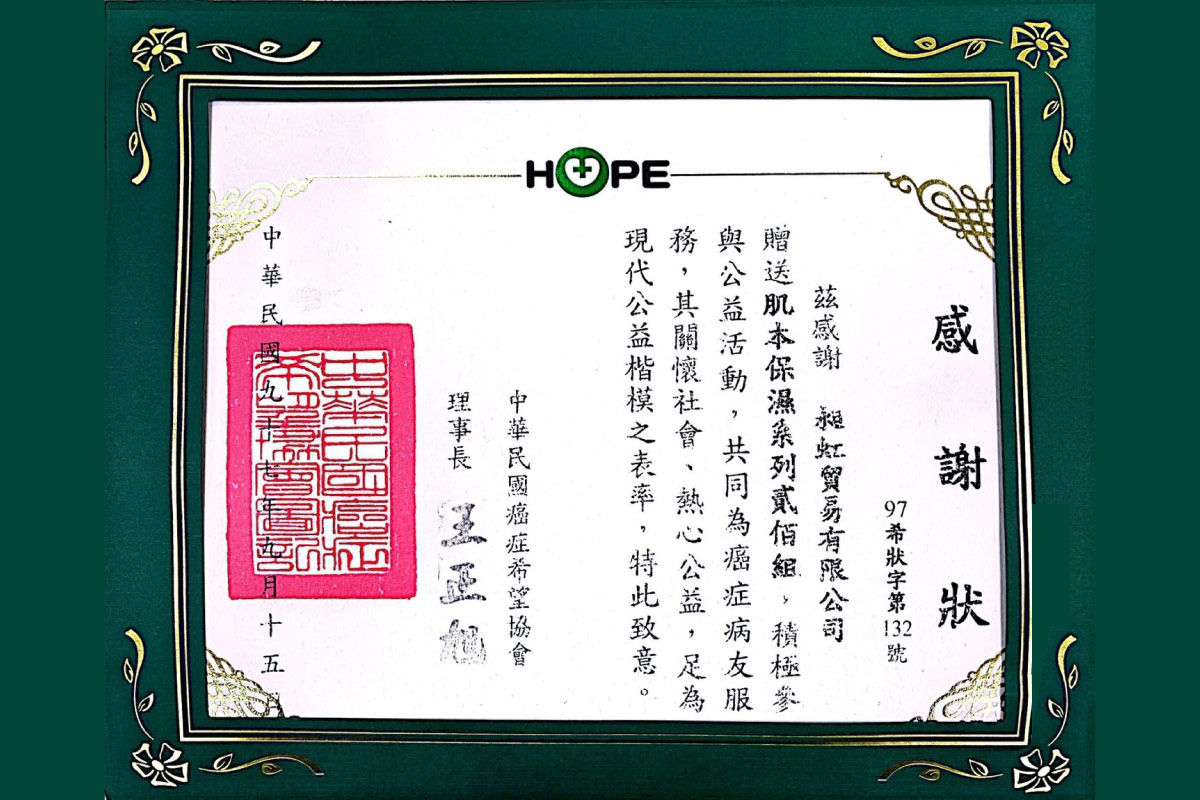 HOPE
感謝狀
97希狀字第132號
茲感謝 昶虹貿易有限公司
贈送肌本保濕系列貳佰組，積極參
與公益活動，共同為癌症病友服
務，其關懷社會、熱心公益，足為
現代公益楷模之表率，特此致意。
中華民國癌症希望協會
理事長 王正旭
中華民國九十七年九月十五日